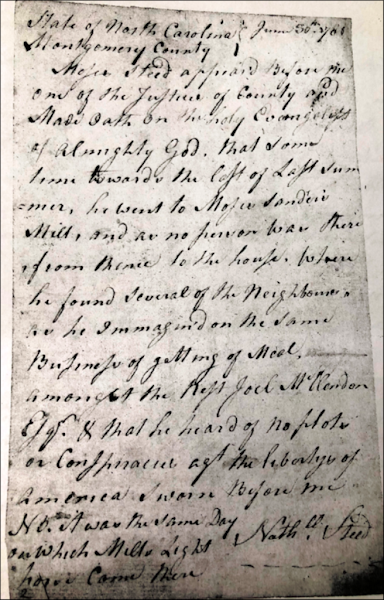 State of North Carolina } June 30th 178
Montgomery County }
Moses Steed appeard Before me
one of the Justice of County and
Made oath on the holy Evangelist
of Almighty God, that some
time towards the Last of Last Sum
=mer, he went to Moses Sanders
Mill, and as no person was there
from thence to the house, Where
he found several of the Neighbours
as he Immagind on the same
Business of getting of Meal,
amongst the Rest Joel McClendon
Esqr. & that he heard of no plots
or Conspiracies agt the libertys of
America Sworn Before me
NB. it was the same Day
on which Mills Light
horse Came there
Nathll. Steed